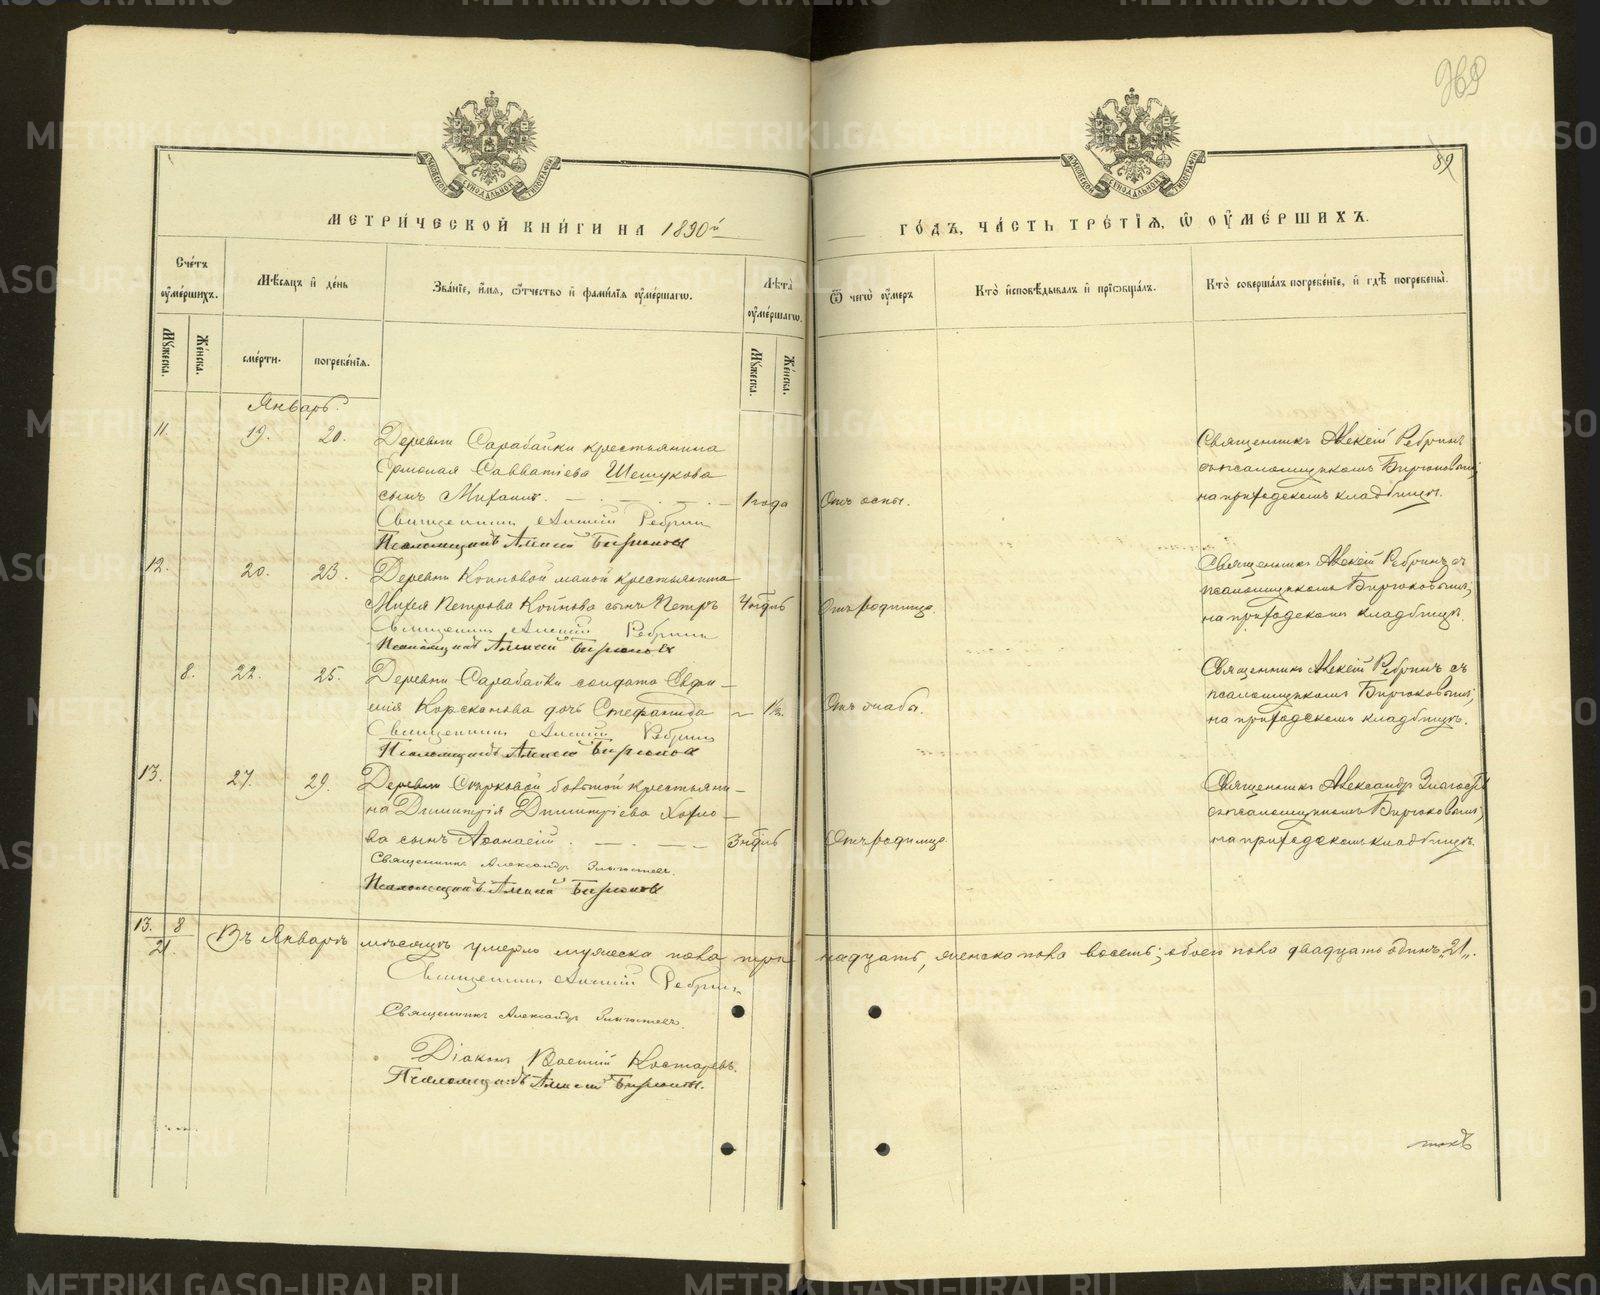 368
89
МЕТРИЧЕСКОЙ КНИГИ НА 1890й
ГОДЪ, ЧАСТЬ ТРЕТІЯ, Ѿ ОУМЕРШИХЪ.
Счетъ оумершихъ.
Мѣсяцъ и день
Званіе, имя, отчество и фамилія оумершагѡ.
Лѣта оумершагѡ.
Ѿ чегѡ оумеръ
Кто исповѣдывалъ и пріобщалъ.
Кто совершалъ погребеніе, и гдѣ погребены.
Мужеска.
Женска.
смерти.
погребенія.
Мужеска.
Женска.
Январь.
11. 19. 20. Деревни Сарабайки крестьянина
Ермолая Савватіева Шешукова
сынъ Михаилъ. 1 года Отъ оспы.
Священникъ Алексій Ребринъ
Псаломщикъ Алексій Бирюковъ
Священникъ Алексій Ребринъ
съ псаломщикомъ Бирюковымъ;
на приходскомъ кладбищѣ.
12. 20. 23. Деревни Коиновой малой крестьянина
Михея Петрова Коинова сынъ Петръ 4 нѣдѣ Отъ родимца.
Священникъ Алексій Ребринъ
Псаломщикъ Алексій Бирюковъ
Священникъ Алексій Ребринъ съ
псаломщикомъ Бирюковымъ;
на приходскомъ кладбищѣ.
8. 22. 25. Деревни Сарабайки солдата Евфи-
мія Корсканова дочь Стефанида 1½. Отъ слабы.
Священникъ Алексій Ребринъ
Псаломщикъ Алексій Бирюковъ
Священникъ Алексій Ребринъ съ
псаломщикомъ Бирюковымъ;
на приходскомъ кладбищѣ.
13. 27. 29. Деревни большой крестьяни-
на Димитрія Димитріева
ва сынъ Аѳанасій 3 нѣдѣ Отъ родимца
Священникъ Александръ Златоустовъ.
Псаломщикъ Алексій Бирюковъ
Священникъ Александръ Златоустовъ
съ псаломщикомъ Бирюковымъ;
на приходскомъ кладбищѣ.
13. 8
21. Въ Январѣ мѣсяцѣ умерло мужеска пола три надцать, женска пола восемь; обоего пола двадцать одинъ "21".
Священникъ Алексій Ребринъ
Священникъ Александръ Златоустовъ.
Діаконъ Василій Костаревъ.
Псаломщикъ Алексій Бирюковъ.
METRIKI.GASO-URAL.RU